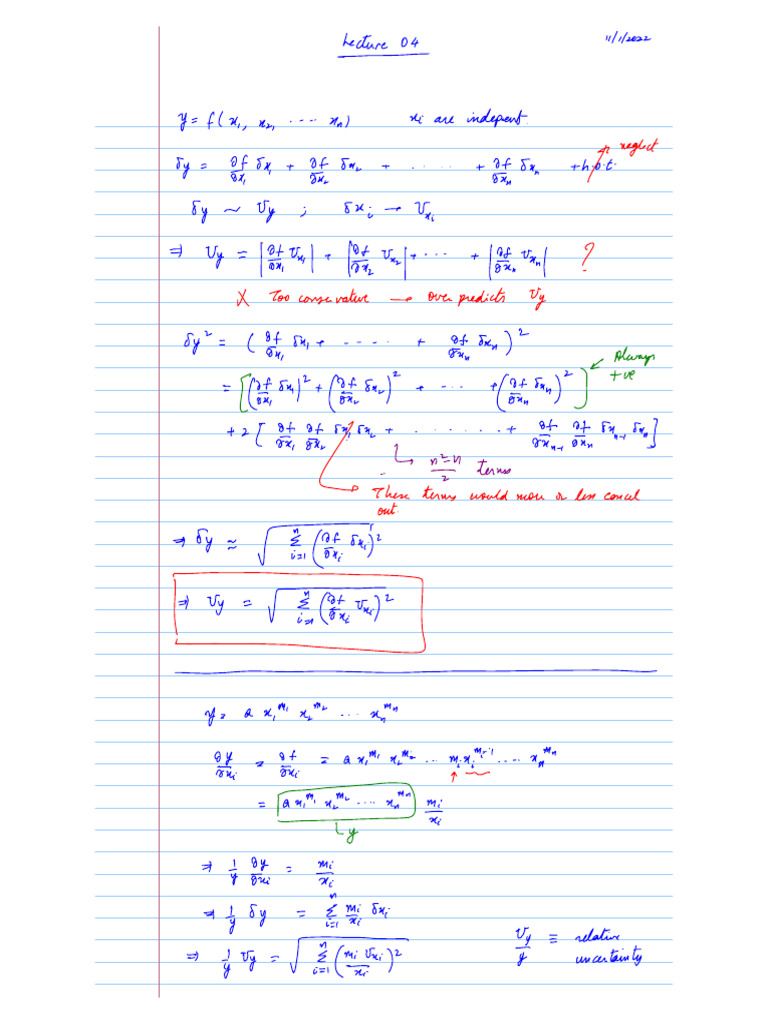 Lecture 04
11/1/2022
y = f( x₁, x₂, ···· xₙ)    xᵢ are indepent.
δy = ∂f/∂x₁ δx₁ + ∂f/∂x₂ δx₂ + · · · · · + ∂f/∂xₙ δxₙ + h.o.t. neglect
δy ~ Uy ; δxᵢ → Uxᵢ
⇒ Uy = |∂f/∂x₁ Ux₁| + |∂f/∂x₂ Ux₂| + · · · + |∂f/∂xₙ Uxₙ| ?
X Too conservative → over predicts Uy
δy² = (∂f/∂x₁ δx₁ + · · · · + ∂f/∂xₙ δxₙ)²
Always
+ve
= [(∂f/∂x₁ δx₁)² + (∂f/∂x₂ δx₂)² + · · · + (∂f/∂xₙ δxₙ)²]
+ 2 [∂f/∂x₁ ∂f/∂x₂ δx₁ δx₂ + · · · · · · · + ∂f/∂xₙ₋₁ ∂f/∂xₙ δxₙ₋₁ δxₙ]
→ (n²-n)/2 terms
→ These terms would more or less cancel
out.
⇒ δy ≈ √(Σᵢ₌₁ⁿ (∂f/∂xᵢ δxᵢ)²)
⇒ Uy = √(Σᵢ₌₁ⁿ (∂f/∂xᵢ Uxᵢ)²)
y = a x₁^m₁ x₂^m₂ ··· xₙ^mₙ
∂y/∂xᵢ = ∂f/∂xᵢ = a x₁^m₁ x₂^m₂ ··· mᵢ xᵢ^(mᵢ-1) ···· xₙ^mₙ
= a x₁^m₁ x₂^m₂ ···· xₙ^mₙ mᵢ/xᵢ
y
⇒ 1/y ∂y/∂xᵢ = mᵢ/xᵢ
⇒ 1/y δy = Σᵢ₌₁ⁿ mᵢ/xᵢ δxᵢ
⇒ 1/y Uy = √(Σᵢ₌₁ⁿ (mᵢ Uxᵢ/xᵢ)²)
Uy/y ≡ relative
uncertainty